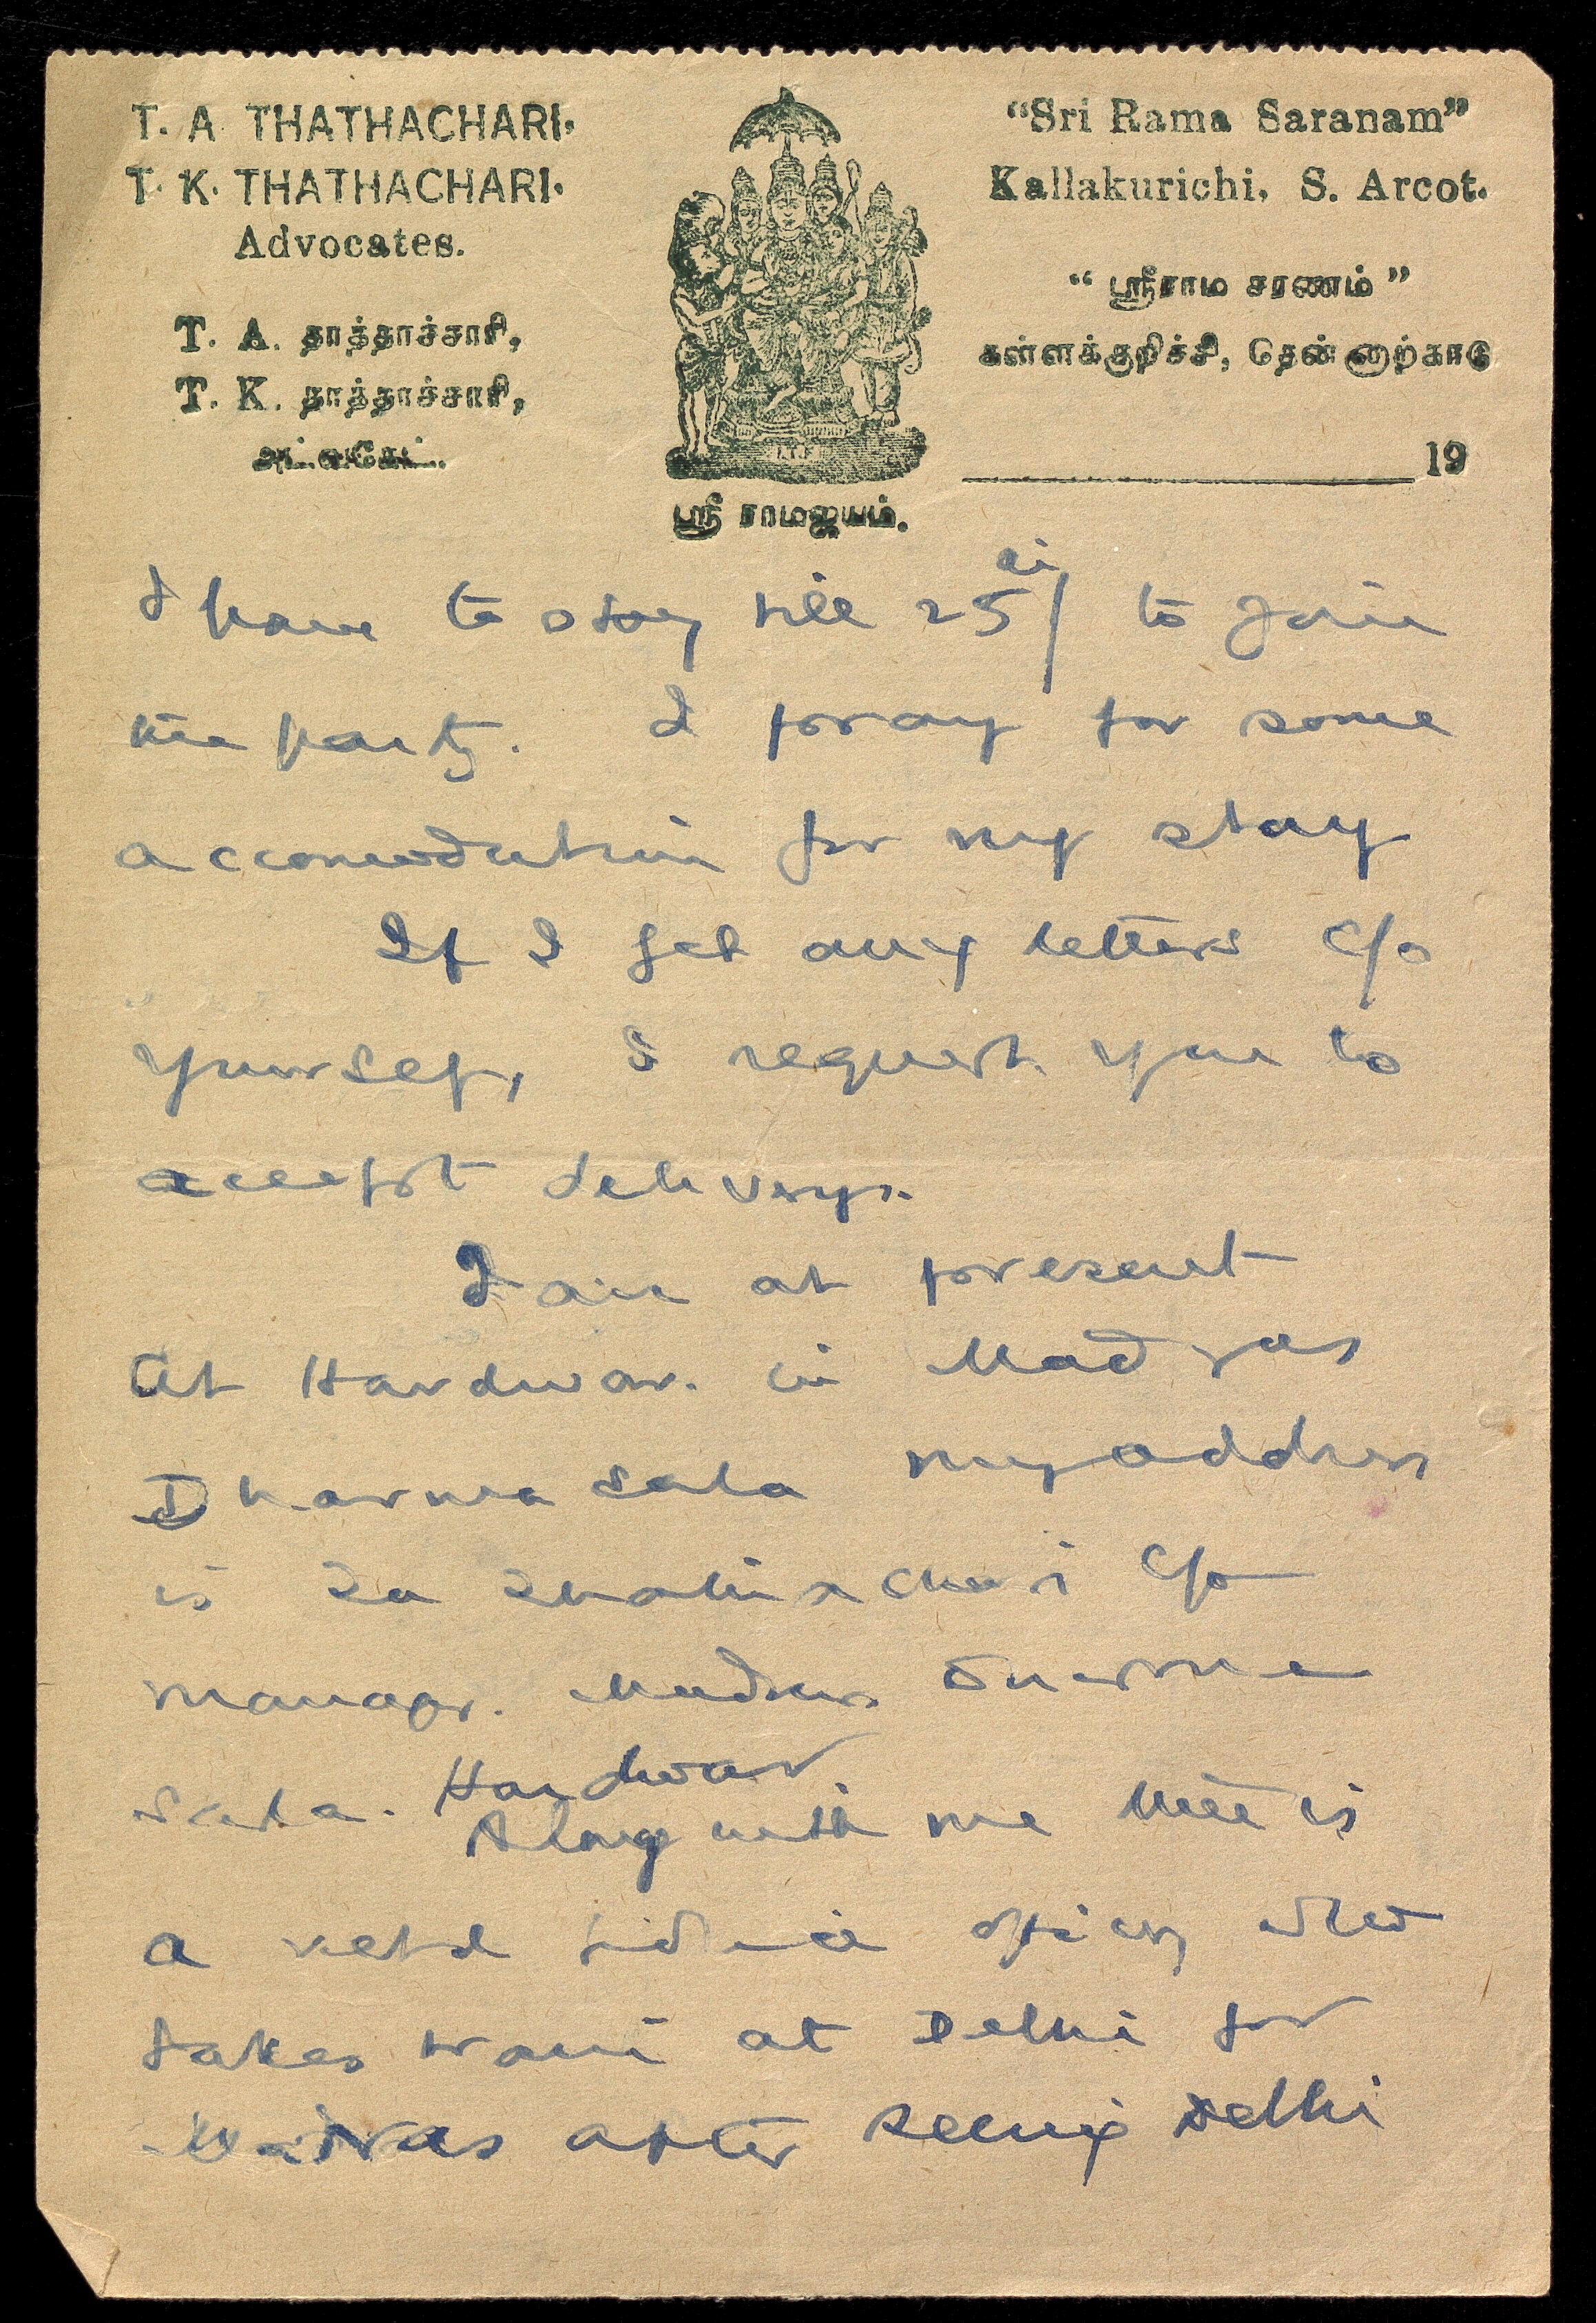 T. A. THATHACHARI.
T. K. THATHACHARI.
Advocates.
T. A. தாத்தாச்சாரி,
T. K. தாத்தாச்சாரி,
ஸ்ரீ ராமஜயம்.
"Sri Rama Saranam"
Kallakurichi, S. Arcot.
" ஸ்ரீராம சரணம் "
கள்ளக்குறிச்சி, தென்னாற்காடு
19
I have to stay till 25 to join
the party. I pray for some
accomodation for my stay
If I get any letters C/o
yourself, I request you to
accept delivery.
I am at present
at Hardwar. in Madras
Dharma sala my address
is Ta Thathachari C/o
manager. Madras Dharma
sala. Hardwar
Along with me there is
a retd officer who
takes train at Delhi for
Madras after seeing Delhi